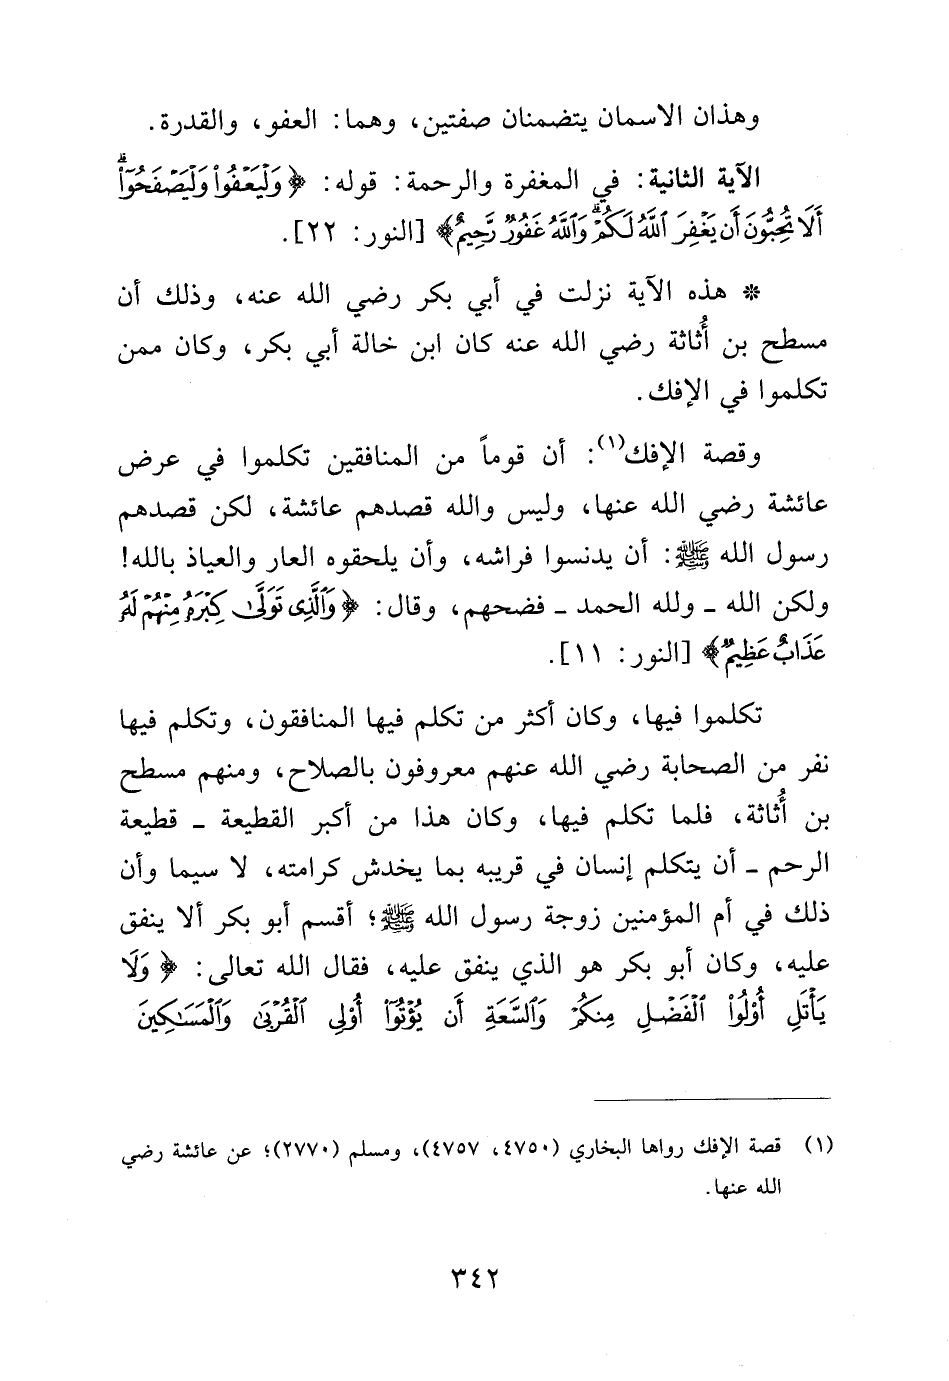 وهذان الاسمان يتضمنان صفتين، وهما: العفو، والقدرة.
الآية الثانية: في المغفرة والرحمة: قوله: ﴿وَلْيَعْفُوا۟ وَلْيَصْفَحُوٓا۟ۗ
أَلَا تُحِبُّونَ أَن يَغْفِرَ ٱللَّهُ لَكُمْۗ وَٱللَّهُ غَفُورٌ رَّحِيمٌ﴾ [النور: ٢٢].
* هذه الآية نزلت في أبي بكر رضي الله عنه، وذلك أن
مسطح بن أُثاثة رضي الله عنه كان ابن خالة أبي بكر، وكان ممن
تكلموا في الإفك.
وقصة الإفك(١): أن قوماً من المنافقين تكلموا في عرض
عائشة رضي الله عنها، وليس والله قصدهم عائشة، لكن قصدهم
رسول الله ﷺ: أن يدنسوا فراشه، وأن يلحقوه العار والعياذ بالله!
ولكن الله ـ ولله الحمد ـ فضحهم، وقال: ﴿وَٱلَّذِى تَوَلَّىٰ كِبْرَهُۥ مِنْهُمْ لَهُۥ
عَذَابٌ عَظِيمٌ﴾ [النور: ١١].
تكلموا فيها، وكان أكثر من تكلم فيها المنافقون، وتكلم فيها
نفر من الصحابة رضي الله عنهم معروفون بالصلاح، ومنهم مسطح
بن أُثاثة، فلما تكلم فيها، وكان هذا من أكبر القطيعة ـ قطيعة
الرحم ـ أن يتكلم إنسان في قريبه بما يخدش كرامته، لا سيما وأن
ذلك في أم المؤمنين زوجة رسول الله ﷺ؛ أقسم أبو بكر ألا ينفق
عليه، وكان أبو بكر هو الذي ينفق عليه، فقال الله تعالى: ﴿وَلَا
يَأْتَلِ أُو۟لُوا۟ ٱلْفَضْلِ مِنكُمْ وَٱلسَّعَةِ أَن يُؤْتُوٓا۟ أُو۟لِى ٱلْقُرْبَىٰ وَٱلْمَسَـٰكِينَ
(١) قصة الإفك رواها البخاري (٤٧٥٠، ٤٧٥٧)، ومسلم (٢٧٧٠)؛ عن عائشة رضي
الله عنها.
٣٤٢